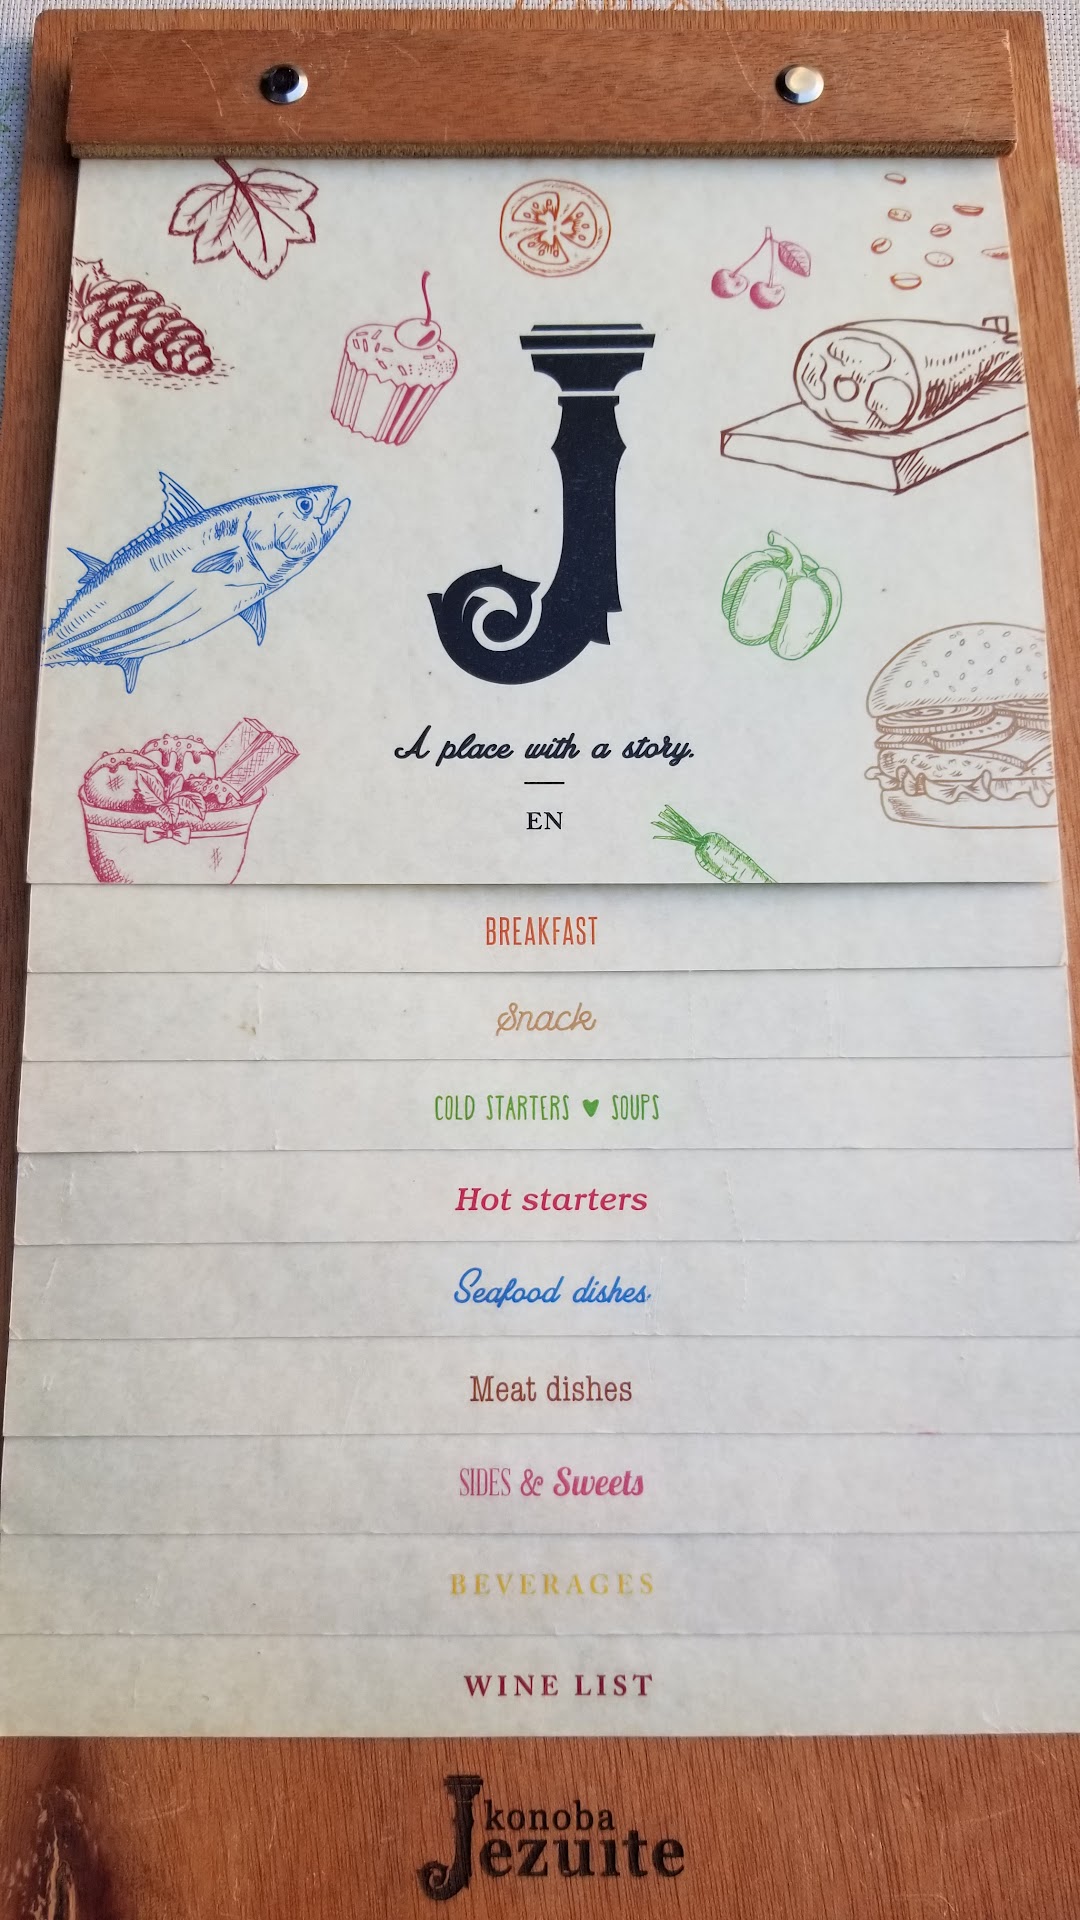 J
A place with a story.
EN
BREAKFAST
Snack
COLD STARTERS ♥ SOUPS
Hot starters
Seafood dishes
Meat dishes
SIDES & Sweets
BEVERAGES
WINE LIST
konoba
Jezuite